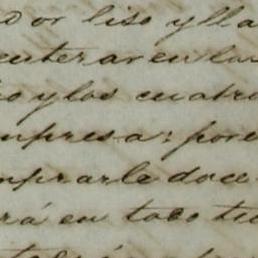 or liso y lla
enterar en la
o y los cuatro
mpresa: por
mprarle doce
rá en todo ti